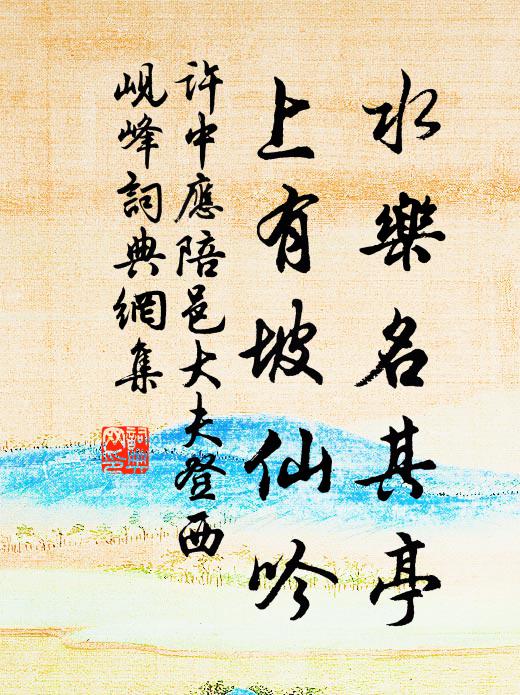 水樂名其亭
上有坡仙吟
許中應陪邑大夫登西
峴峰詞典網集